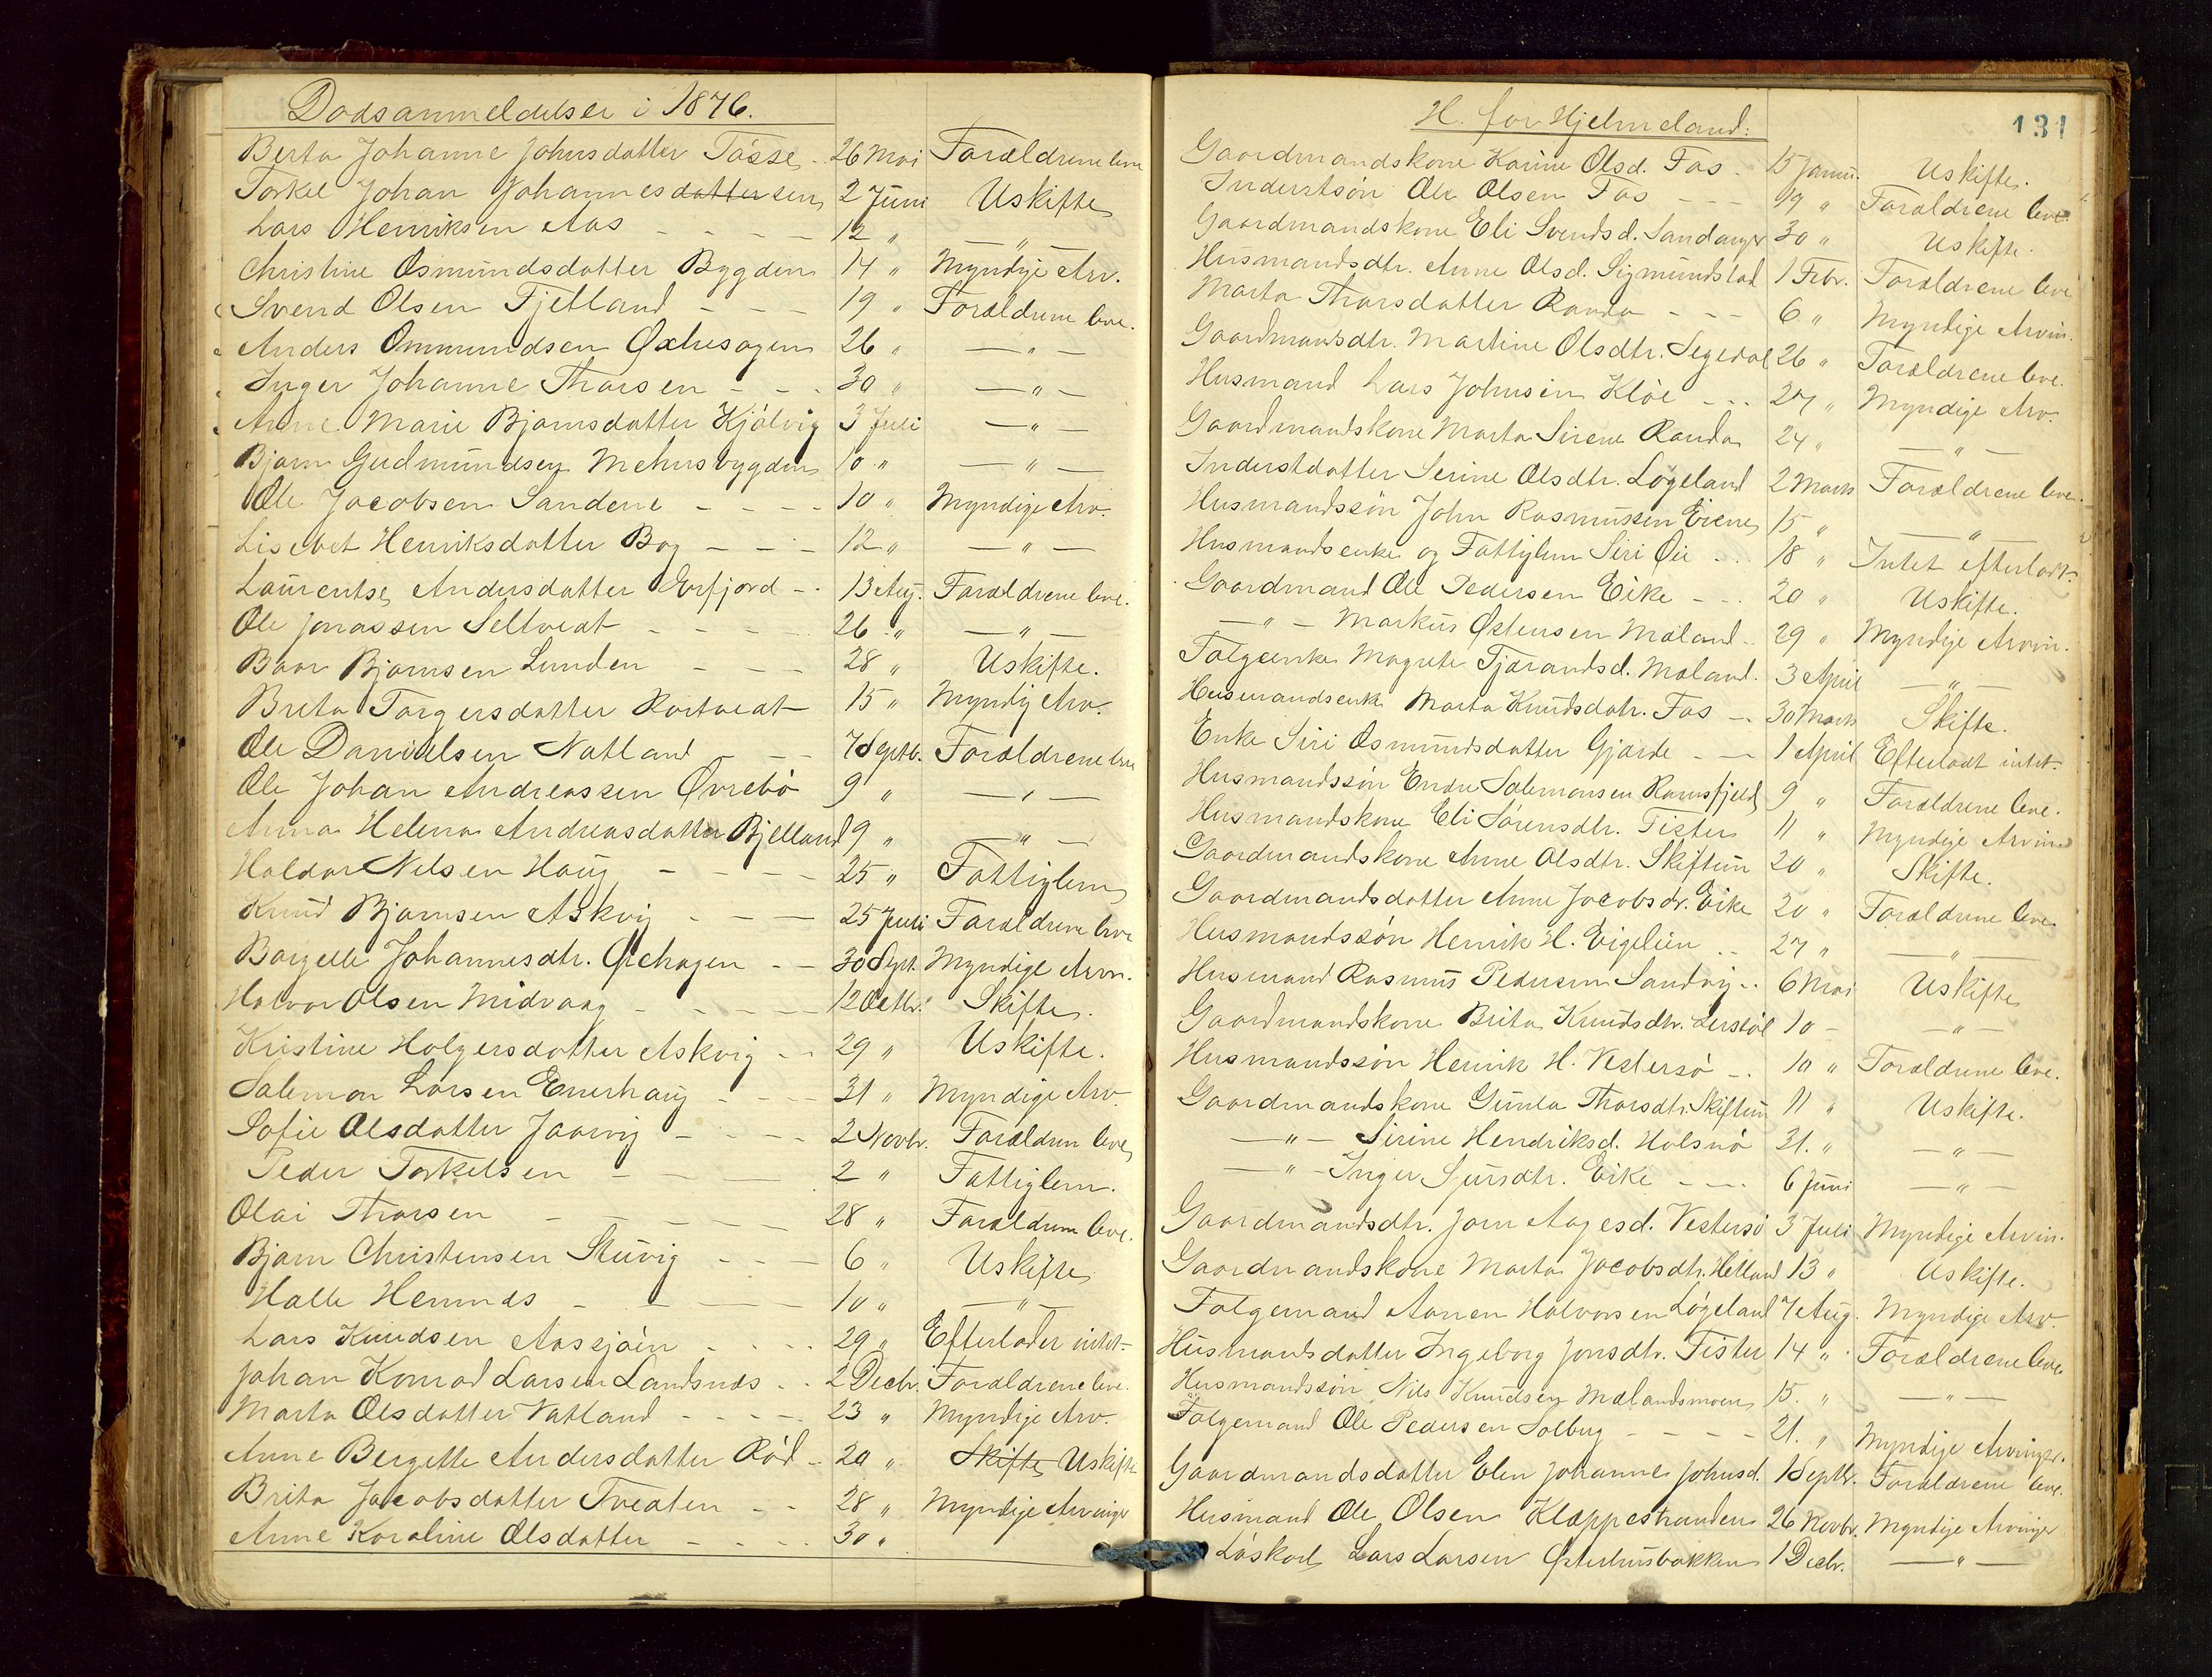 Dødsanmeldelser i 1876.
Berta Johanne Johnsdatter Tøsse - 26 Mai Forældrene leve
Torkel Johan Johannesdattersen 2 Juni Uskifte
Lars Henriksen Aas - - - - 12 " — " —
Christine Osmundsdatter Bygden 14 " Myndige Arv.
Svend Olsen Fjelland - - - 19 " Forældrene leve.
Anders Ommundsen 26 " — " —
Inger Johanne Thorsen - - - 30 " — " —
Anne Marie Bjørnsdatter Kjølvig 3 Juli — " —
Bjørn Gudmundsen Mehusbygden 10 " — " —
Ole Jacobsen Sandene - - - - 10 " Myndige Arv.
Lisebet Henriksdatter Bog - - - 12 " — " —
Laurentse Andersdatter Erfjord - - 13 Aug. Forældrene leve.
Ole Jonassen Seltvedt - - - - 26 " — " —
Baar Bjørnsen Lunden - - - 28 " Uskifte.
Brita Torgersdatter Rortvedt 15 " Myndig Arv.
Ole Danielsen Natland - - - 7 Septb. Forældrene leve
Ole Johan Andreassen Øvrebø 9 " — " —
Anna Helena Andreasdatter Bjelland 9 " — " —
Haldor Nilsen Haug - - - - 25 " Fattiglem
Knud Bjørnsen Askvig - - - 25 Juli Forældrene leve
Borgelle Johannesdtr. - - 30 Sept. Myndige Arvin.
Halvor Olsen Midvaag - - - - 12 Octbr. Skifte.
Kristine Holgersdatter Askvig - - 29 " Uskifte.
Salemon Larsen Enerhaug - - - - 31 " Myndige Arv.
Sofie Olsdatter Jaarvig - - - - 2 Novbr. Forældren leve
Peder Torkelsen - - - - 2 " Fattiglem.
Olai Thorsen - - - - - 28 " Forældren leve.
Bjørn Christensen Stuvig - - - 6 " Uskifte
Halle Hemnæs - - - - 10 " — " —
Lars Knudsen Aasjøen - - - - 29 " Efterlader intet
Johan Konrad Larsen Landsnæs - - 2 Decbr. Forældrene leve.
Marta Olsdatter Vatland - - - - 23 " Myndige Arv.
Anne Bergette Andersdatter Rød - 20 " Skifte Uskifte
Brita Jacobsdatter Tveaten - - 28 " Myndige Arvinger
Anne Karoline Olsdatter - - - - 30 "
H. for Hjelmeland:
131
Gaardmandskone Karine Olsd. Fos - 15 Janu. Uskifte.
Inderstsøn Ole Olsen Fos - - - 19 " Forældrene leve.
Gaardmandskone Eli Svendsd. Sandanger 30 " Uskifte.
Husmandsdtr. Anne Olsd. Sigmundstad 1 Febr. Forældrene leve
Marta Thorsdatter Randa - - - 6 " Myndige Arvin.
Gaardmandsdtr. Martine Olsdtr. Segedal 26 " Forældrene leve.
Husmand Lars Johnsen Kløe - - - 27 " Myndige Arv.
Gaardmandskone Marta Sirene Randa 24 " — " —
Inderstdatter Serine Olsdtr. Løgeland 2 Marts Forældrene leve.
Husmandssøn John Rasmussen Eiene 15 " — " —
Husmandsenke og Fattiglem Siri Øie - - 18 " Intet efterladt
Gaardmand Ole Pedersen Eike - - - 20 " Uskifte.
— " — Markus Østensen Mæland - 29 " Myndige Arvin.
Følgeenke Magrete Tjærandsd. Mæland. 3 April — " —
Husmandsenke Marta Knudsdatr. Fos - - 30 Marts Skifte.
Enke Siri Osmundsdatter Gjærde - - 1 April Efterladt intet.
Husmandssøn Endre Salemonsen Ramsfjeld 9 " Forældrene leve.
Husmandskone Eli Sørensdtr. Fister 11 " Myndige Arvin
Gaardmandskone Anne Olsdtr. Skiftun 20 " Skifte.
Gaardmandsdatter Anne Jacobsdr. Eike 20 " Forældrene leve
Husmandssøn Henrik H. Eigelien - - 27 " — " —
Husmand Rasmus Pedersen Sandvig - - 6 Mai Uskifte
Gaardmandskone Brita Knudsdtr. Lerstøl 10 - — " —
Husmandssøn Henrik H. Vestersø - - 10 " Forældrene leve.
Gaardmandskone Gunla Thorsdtr. Skiftun 11 " Uskifte.
— " — Sirine Hendriksd. Holsnø 31. " — " —
— " — Inger Sjursdtr. Eike - - - 6 Juni — " —
Gaardmandsdtr. Jorn Aagesd. Vestersø 3 Juli Myndige Arvin.
Gaardmandskone Marta Jacobsdtr. Helland 13 " Uskifte.
Følgemand Aanen Halvorsen Løgeland 7 Aug. Myndige Arv.
Husmandsdatter Ingeborg Jonsdtr. Fister 14 " Forældrene leve
Husmandssøn Nils Knudsen Mælandsmoen 15. " — " —
Følgemand Ole Pedersen Solberg - - - - 21. " Myndige Arvinger.
Gaardmandsdatter Elen Johanne Johnsd. 1 Septbr. Forældrene leve.
Husmand Ole Olsen Klæppestranden 26 Novbr. Myndige Arvinger
Løskarl Lars Larsen Østerhusbakken 1 Decbr. — " —